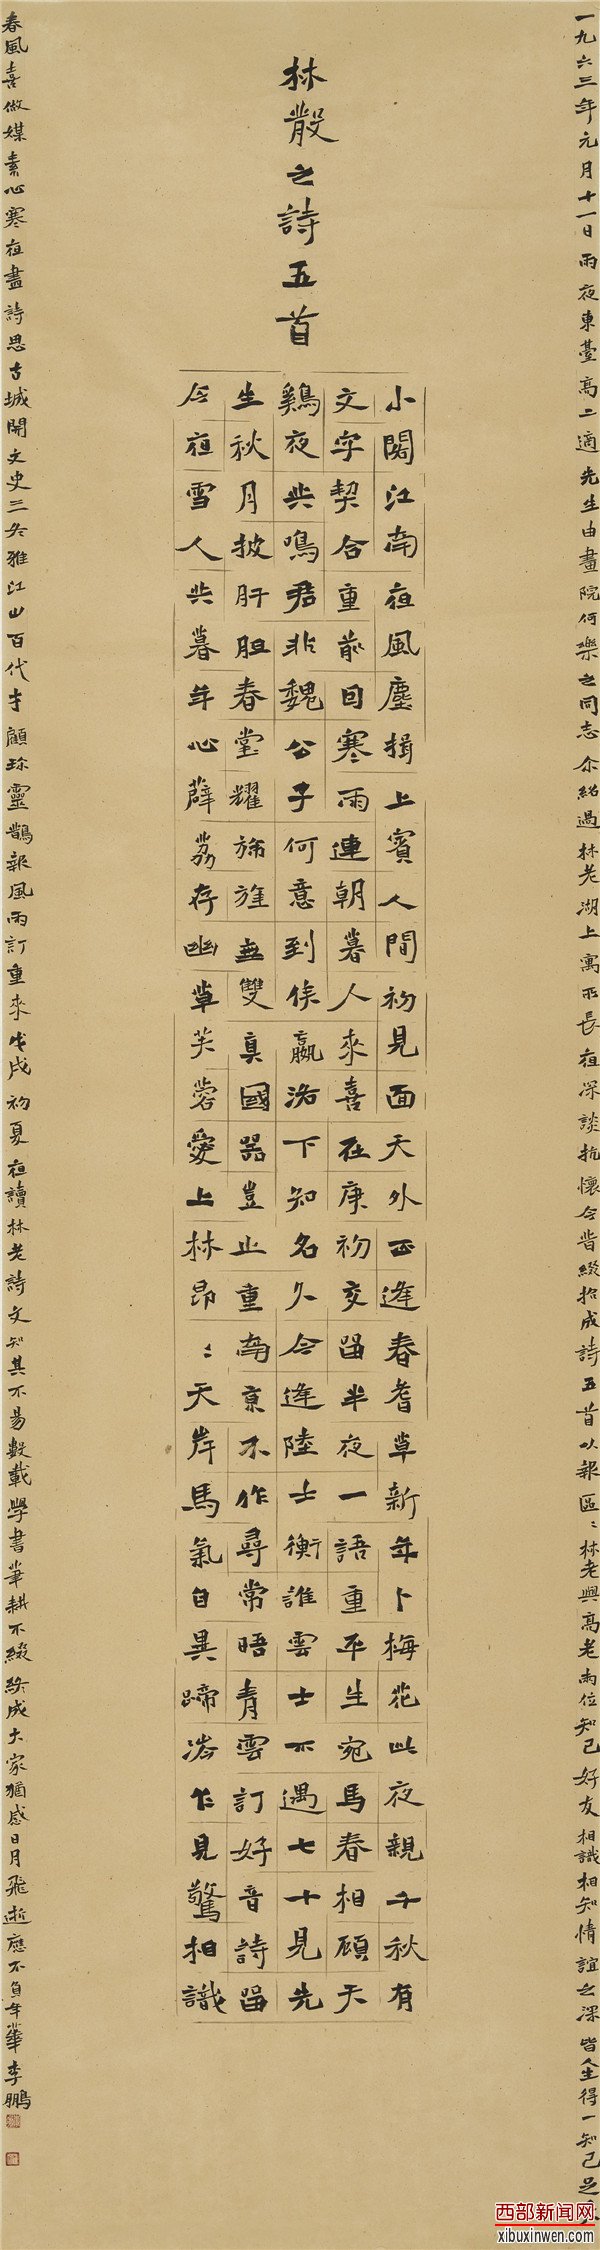 一九六三年元月十一日雨夜東臺高二適先生由畫院何樂之同志介紹過林老湖上寓所長夜深談抗懷今昔綴拾成詩五首以報區〻林老與高老兩位知己好友相識相知情誼之深皆人生得一知己足矣
林散之詩五首
小閣江南夜風塵揖上賓人間初見面天外正逢春耆草新年卜梅花此夜親千秋有
文字契合重前因寒雨連朝暮人來喜在庚初交留半夜一語重平生宛馬春相顧天
鷄夜共鳴君非魏公子何意到侯嬴洛下知名久今逢陸士衡誰雲士不遇七十見先
生秋月披肝胆春堂耀旆旌無雙真國器豈止重南京不作尋常晤青雲訂好音詩留
今夜雪人共暮年心薜荔存幽草芙蓉愛上林昂〻天岸馬氣自異蹄涔乍見驚相識
春風喜做媒素心寒夜盡詩思古城開文史三冬雅江山百代才顧珍靈鵲報風雨訂重來戊戌初夏夜讀林老詩文知其不易數載學書筆耕不綴終成大家猶感日月飛逝應不負年華李鵬
西部新闻网
xibuxinwen.com